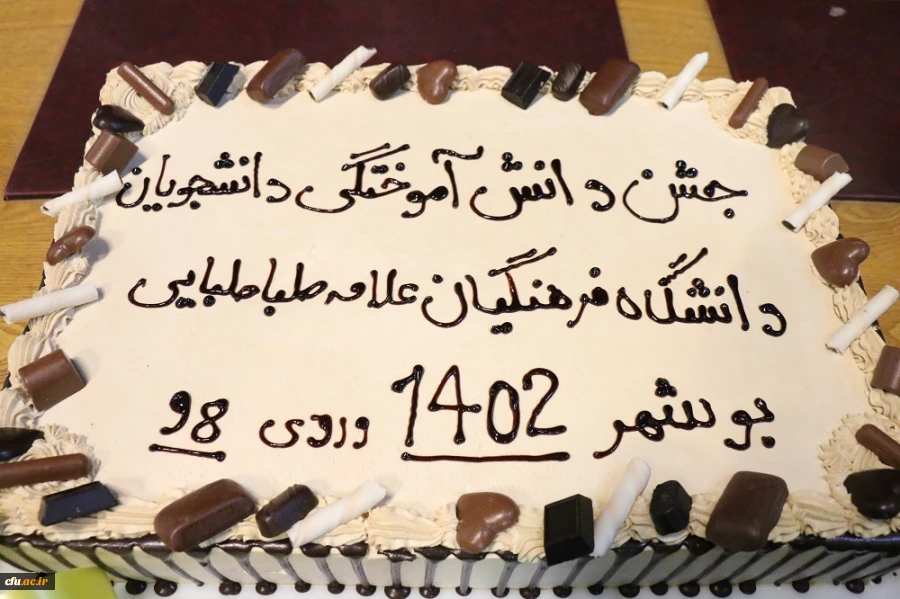 جشن دانش آموختگی دانشجویان
دانشگاه فرهنگیان علامه طباطبایی
بوشهر 1402 ورودی 98
cfu.ac.ir